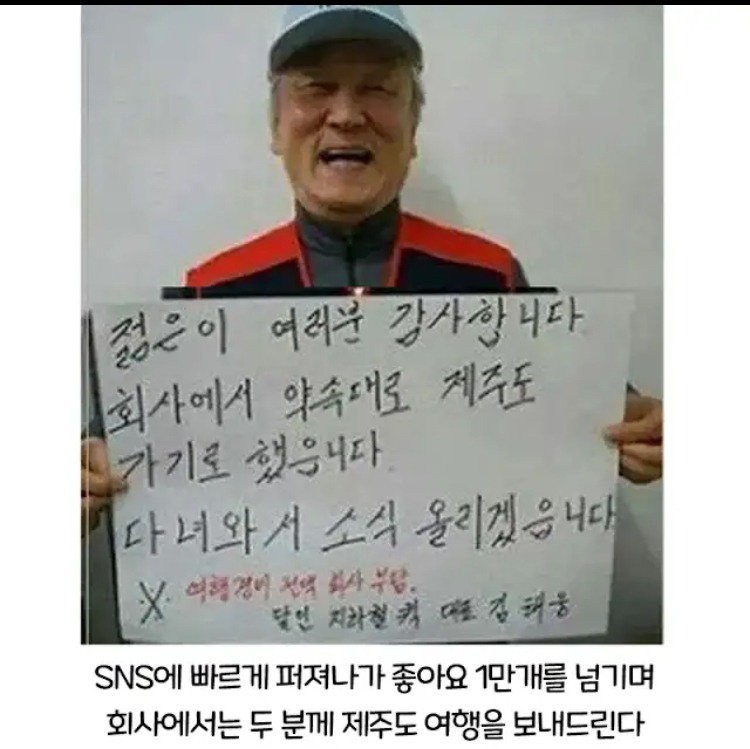 젊은이 여러분 감사합니다.
회사에서 약속대로 제주도
가기로 했읍니다.
다녀와서 소식 올리겠읍니다
※ 여행경비 전액 회사 부담.
달인 지하철 퀵 대표 김태웅
SNS에 빠르게 퍼져나가 좋아요 1만개를 넘기며
회사에서는 두 분께 제주도 여행을 보내드린다